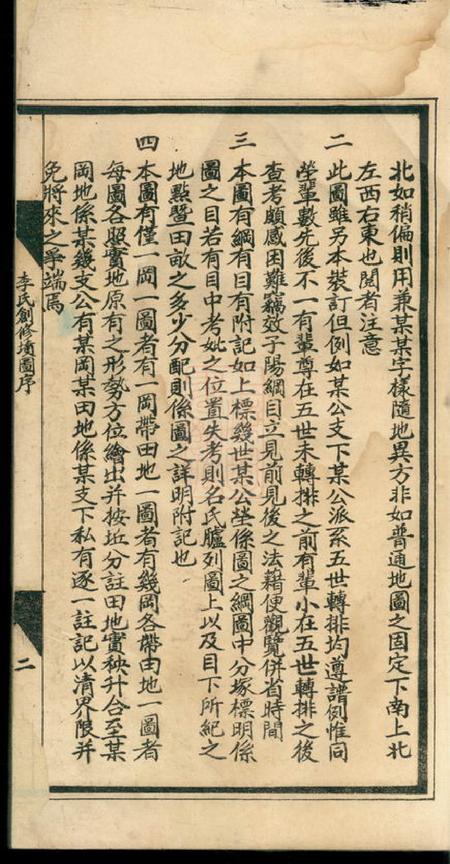 北如稍偏則用兼某某字樣隨地異方非如普通地圖之固定下南上北
左西右東也閱者注意
二 此圖雖另本裝訂但例如某公支下某公派系五世轉排均遵譜例惟同
塋輩數先後不一有輩尊在五世未轉排之前有輩小在五世轉排之後
查考頗感困難竊效子陽綱目立見前見後之法藉便觀覽併省時間
三 本圖有綱有目有附記如上標幾世某公塋係圖之綱圖中分塚標明係
圖之目若有目中考妣之位置失考則名氏臚列圖上以及目下所紀之
地點暨田畝之多少分配則係圖之詳明附記也
四 本圖有僅一岡一圖者有一岡帶田地一圖者有幾岡各帶田地一圖者
每圖各照實地原有之形勢方位繪出并按坵分註田地實秧升合至某
岡地係某幾支公有某岡某田地係某支下私有逐一註記以清界限并
免將來之爭端焉
李氏創修墳圖序
二